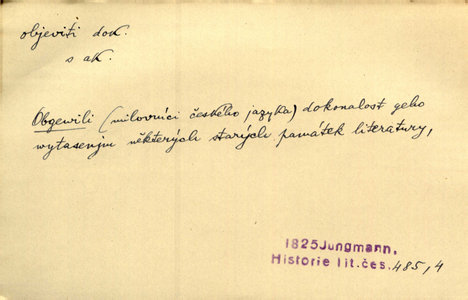 objeviti dok.
s ak.
Obgewili (milovníci českého jazyka) dokonalost geho
wytasenjm některých starých památek literatury,
1825 Jungmann,
Historie lit.čes. 485, 4